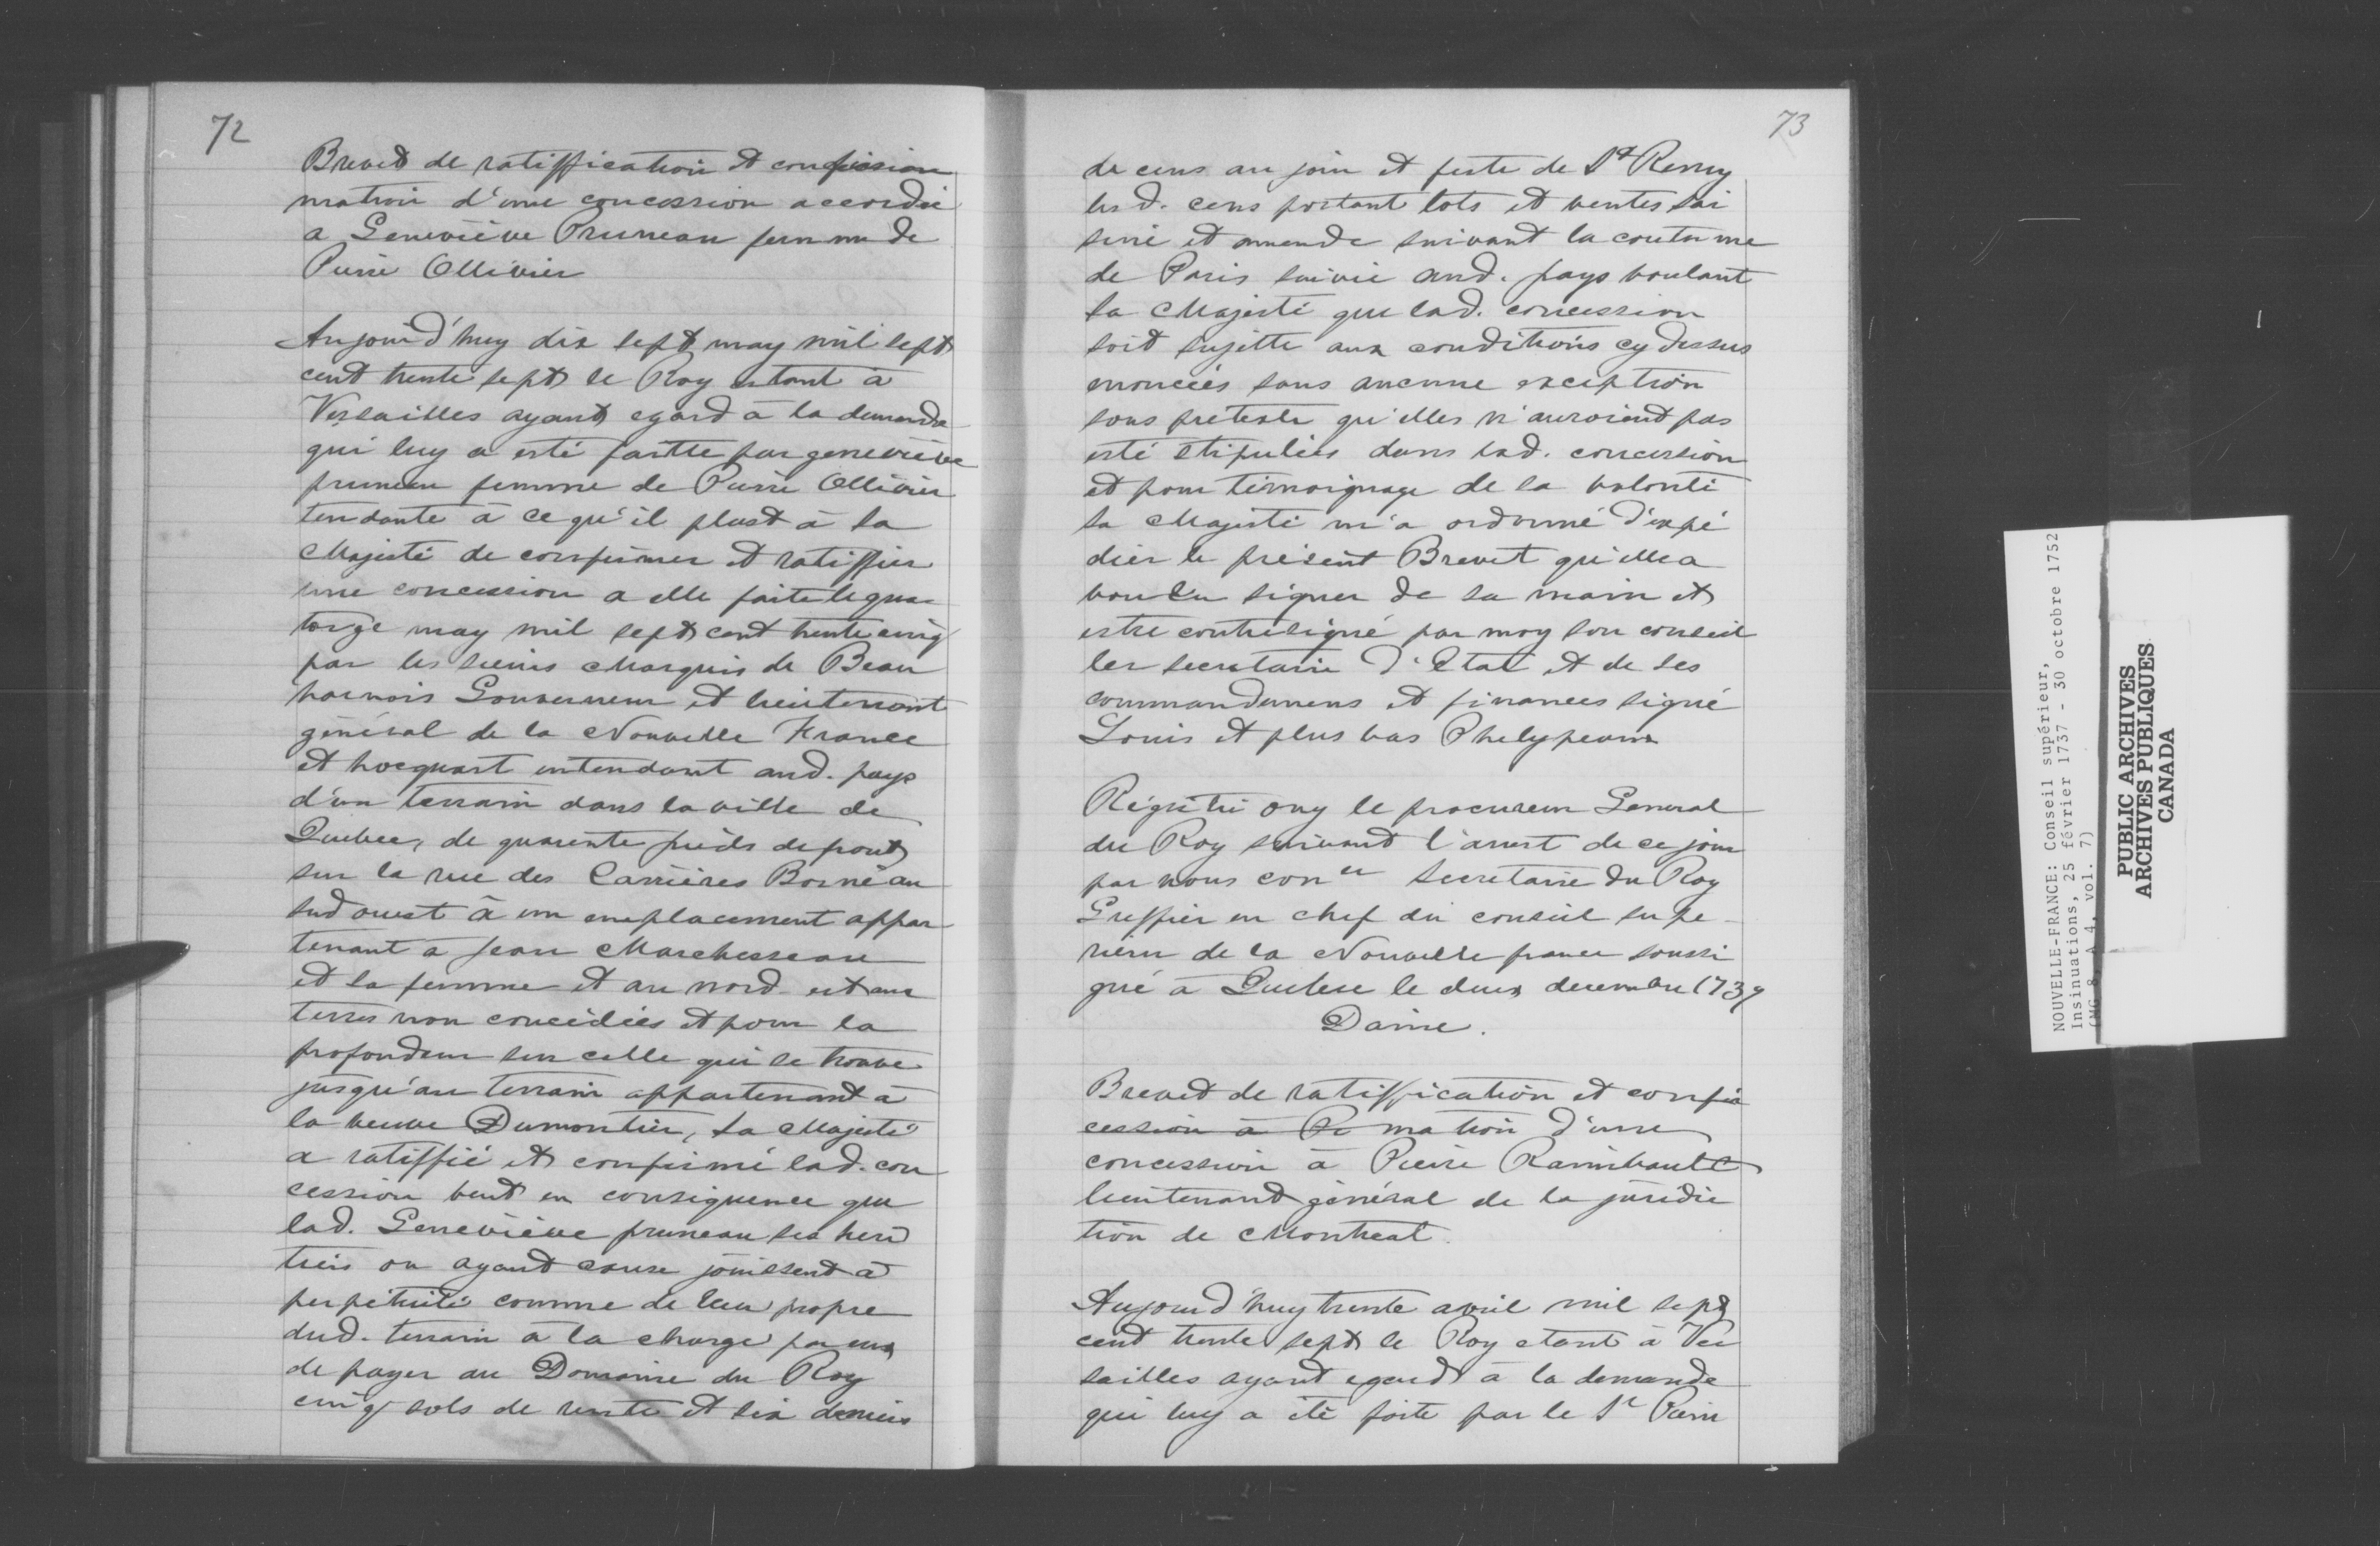 72
Brevet de ratiffication et confir
mation d'une concession accordée
a Geneviève Pruneau femme de
Pierre Ollivier
Aujourd'huy dix sept may mil sept
cent trente sept le Roy estant à
Versailles ayant egard à la demande
qui luy a esté faitte par geneviève
pruneau femme de Pierre Ollivier
tendante à ce qu'il plust à sa
Majesté de confirmer et ratiffier
une concession a elle faite le qua
torze may mil sept cent trente cinq
par les sieurs Marquis de Beau
harnois Gouverneur et lieutenant
général de la Nouvelle France
et hocquart intendant aud. pays
d'un terrain dans la ville de
Quebec, de quarente pieds de front
sur la rue des Carrières Borné au
sud ouest à un emplacement appar
tenant a Jean Marchesseau
et sa femme et au nord est aux
terres non concédées et pour la
profondeur sur celle qui se trouve
jusqu'au terrain appartenant à
la veuve Dumontier, sa Majesté
a ratiffié et confirmé lad. con
cession veut en consequence que
lad. Geneviève pruneau ses heri
tiers ou ayant cause jouissent à
perpétuité comme de leur propre
dud. terrain à la charge par eux
de payer au Domaine du Roy
cinq sols de rente et six deniers
73
de cens au jour et feste de St Remy
lesd. cens portant lots et ventes sai
sine et amende suivant la coutume
de Paris suivie aud. pays voulant
sa Majesté que lad. concession
soit sujette aux conditions cy dessus
enoncées sans aucune exception
sous pretexte qu'elles n'auroient pas
esté stipulées dans lad. concession
et pour témoignage de sa volonté
sa Majesté m'a ordonné d'expé
dier le présent Brevet qu'elle a
voulu signer de sa main et
estre contresigné par moy son conseil
ler secretaire d'Etat et de ses
commandemens et finances signé
Louis et plus bas Phelypeaux
Régistré ouy le procureur General
du Roy suivant l'arrest de ce jour
par nous coner Secretaire du Roy
Greffier en chef du conseil supe-
rieur de la Nouvelle france soussi
gné à Quebec le deux decembre 1737
Daine.
Brevet de ratiffication et confir
cession à Pi mation d'une
concession à Pierre Raimbault
lieutenant général de la juridic
tion de Montreal.
Aujourd'huy trente avril mil sept
cent trente sept le Roy etant à Ver
sailles ayant egard à la demande
qui luy a été faite par le Sr Pierre
NOUVELLE-FRANCE: Conseil supérieur,
Insinuations, 25 février 1737 - 30 octobre 1752
(MG 8, A 4, vol. 7)
PUBLIC ARCHIVES
ARCHIVES PUBLIQUES
CANADA